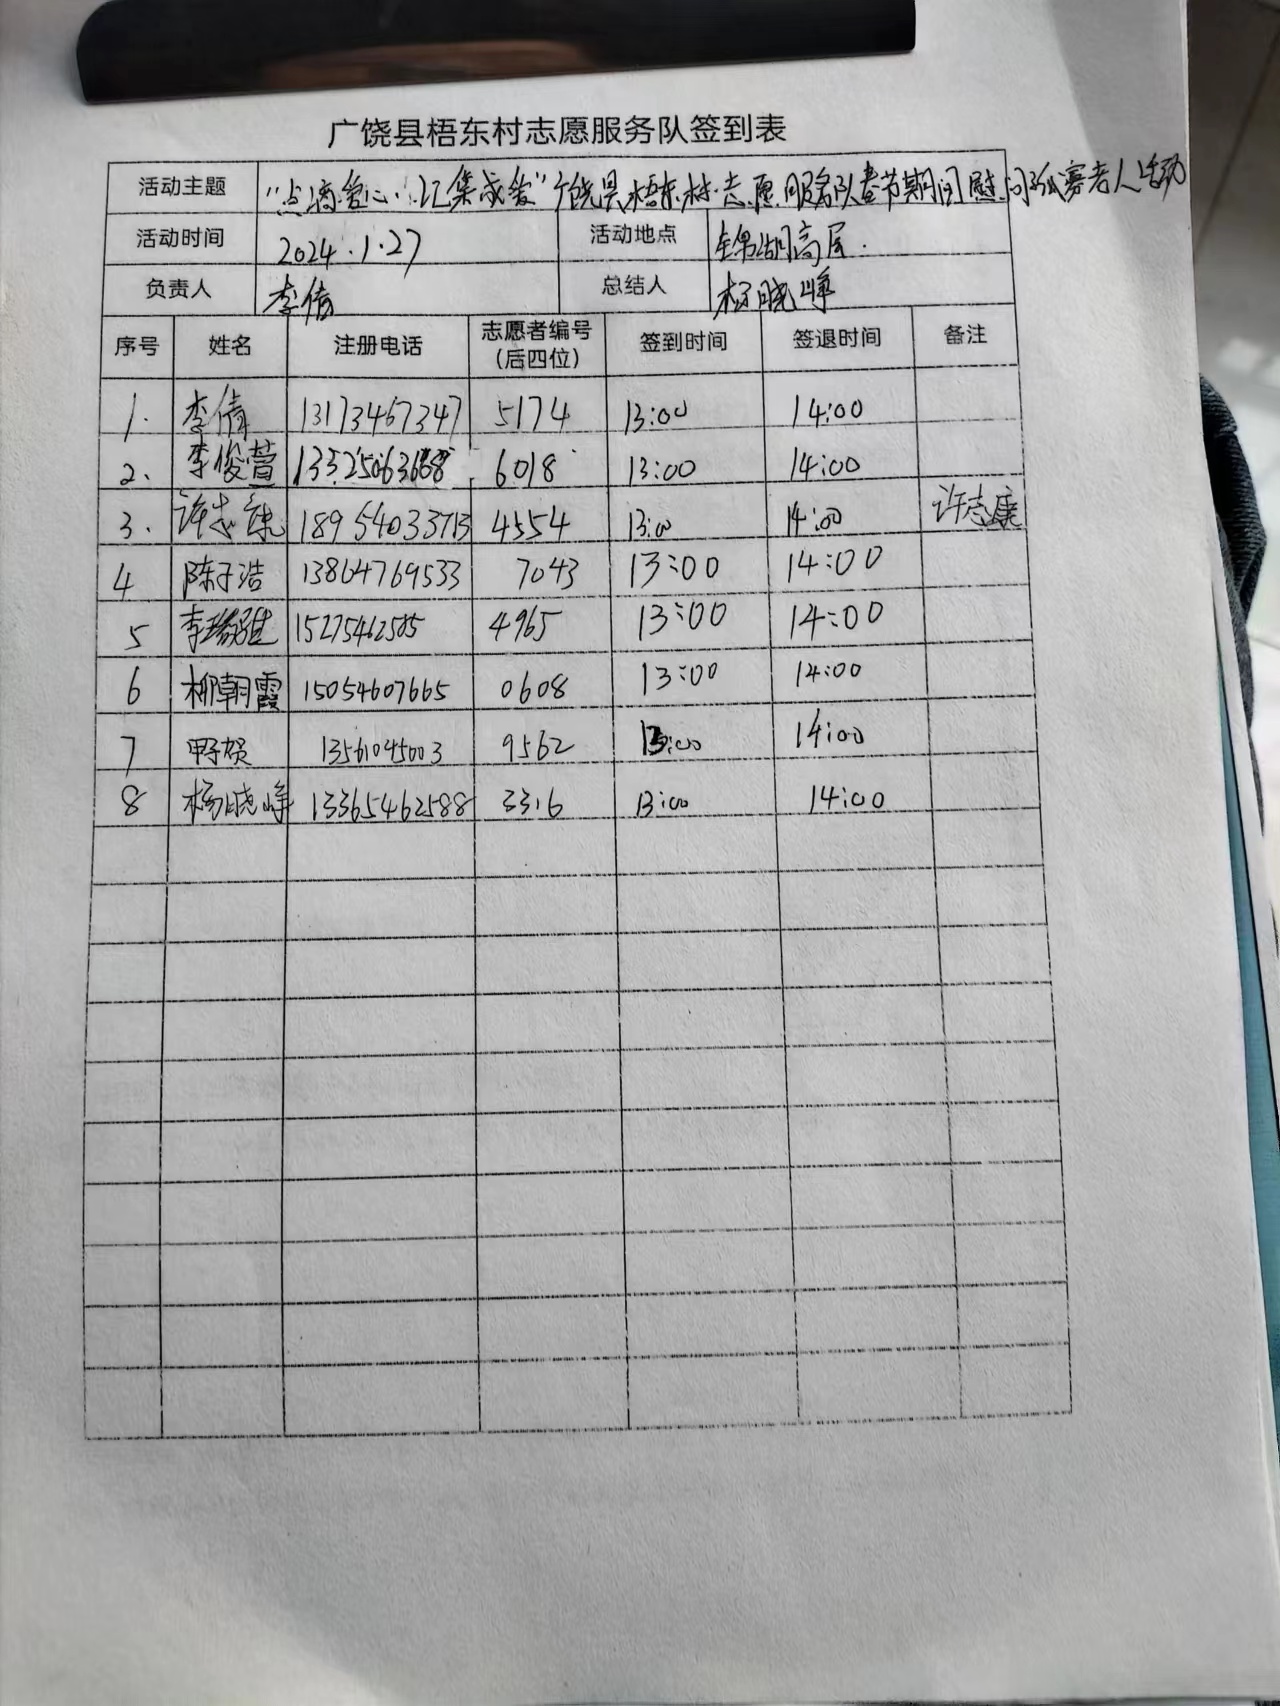 广饶县梧东村志愿服务队签到表
活动主题 "点滴爱心,汇集成爱"广饶县梧东村志愿服务队春节期间慰问孤寡老人活动
活动时间 2024.1.27 活动地点 锦湖高层.
负责人 李倩 总结人 杨晓峰
序号 姓名 注册电话 志愿者编号(后四位) 签到时间 签退时间 备注
1. 李倩 13173467347 5174 13:00 14:00
2、 李俊萱 6018 13:00 14:00
3. 许志康 18954033713 4554 13:00 14:00 许志康
4 陈子浩 13864769533 7043 13:00 14:00
5 15275462505 4965 13:00 14:00
6 柳朝霞 15054607665 0608 13:00 14:00
7 13561045003 9562 13:00 14:00
8 杨晓峰 13365462588 3316 13:00 14:00